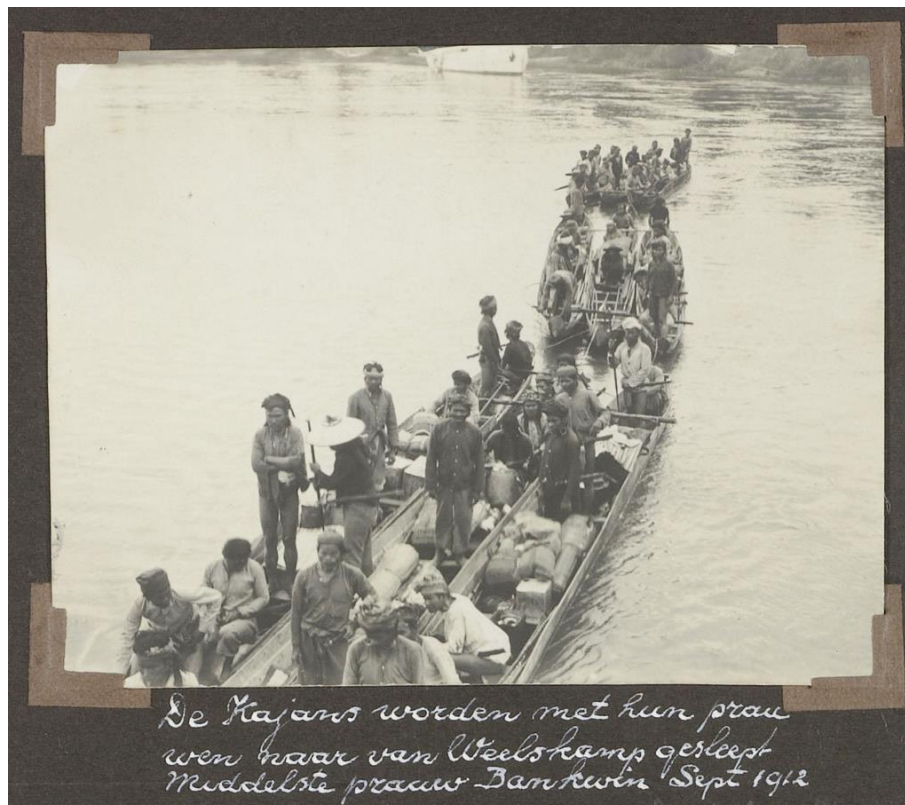 De Kajans worden met hun prau
wen naar van Weelskamp gesleept
Middelste prauw Bankwin Sept 1912